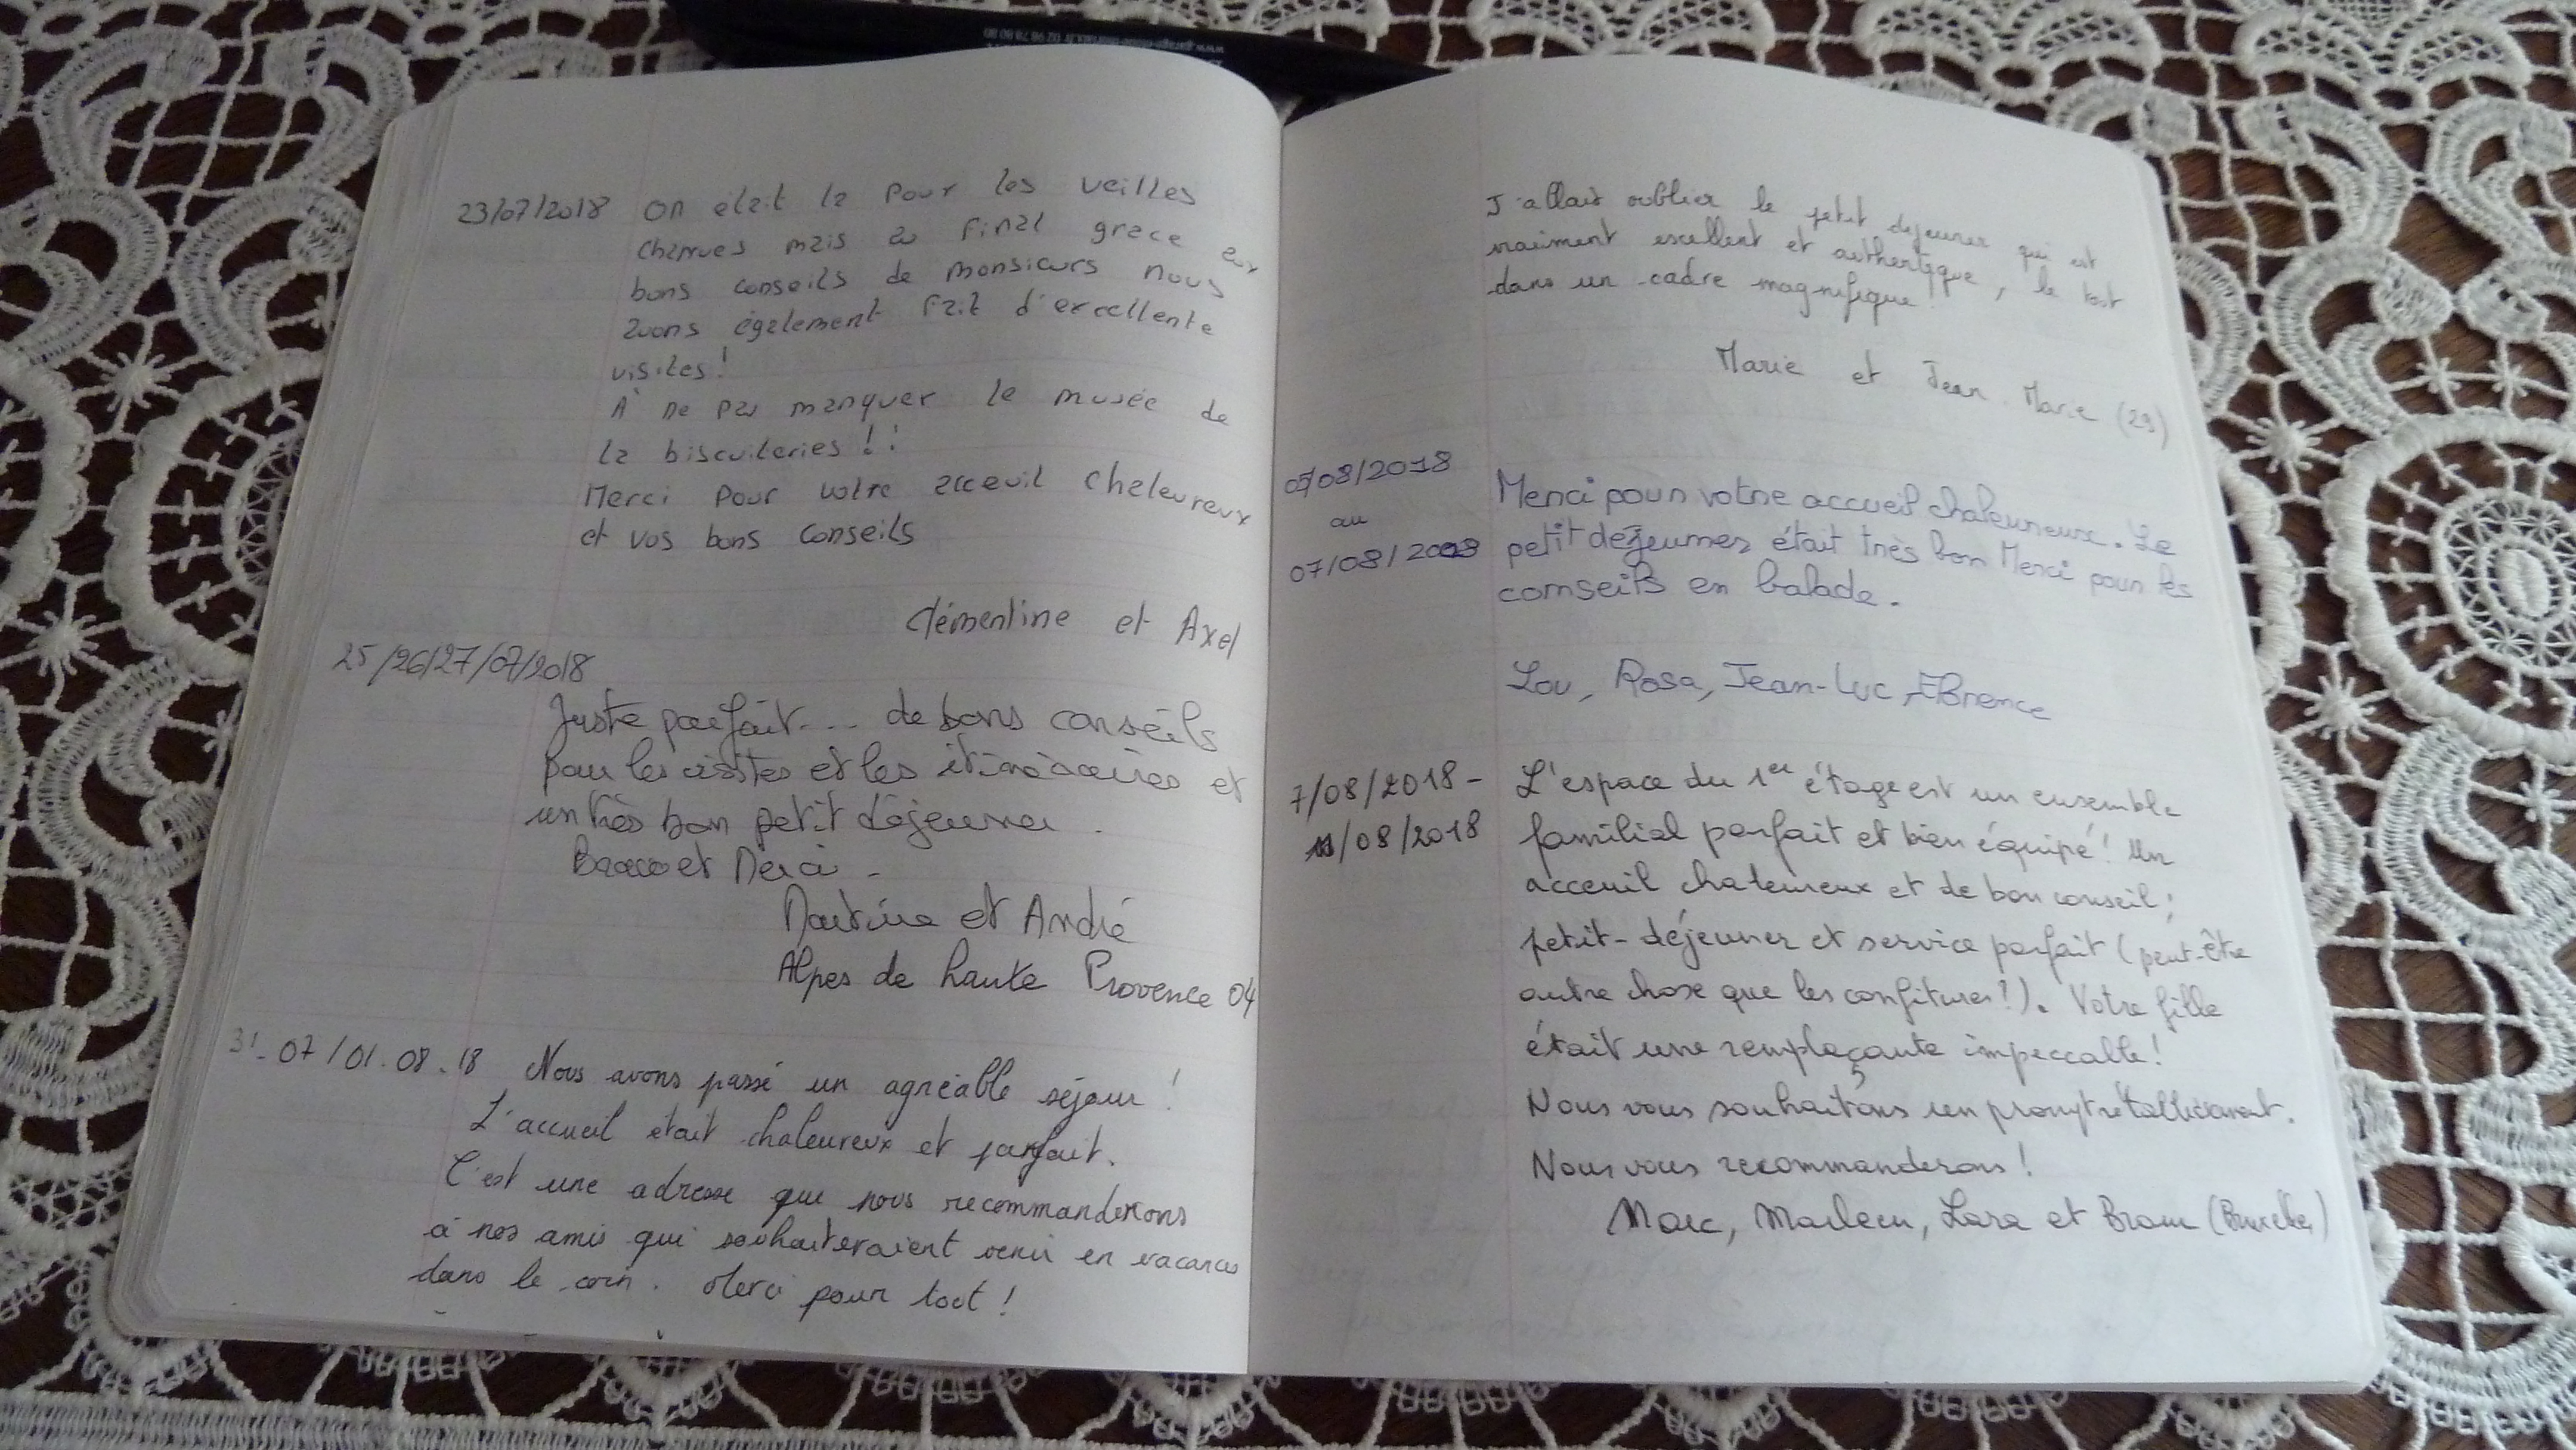 www.garage- 02 98 78 80 80
23/07/2018 On était là pour les veilles
charrues mais au final grace aux
bons conseils de monsieurs nous
avons également fait d'excellente
visites!
À ne pas manquer le musée de
la biscuiteries !!
Merci pour votre acceuil chaleureux
et vos bons conseils
Clémentine et Axel
25/26/27/07/2018
Juste parfait... de bons conseils
pour les visites et les itinéraires et
un très bon petit déjeuner.
Bravo et Merci -
Martine et André
Alpes de haute Provence 04
31-07/01.08.18 Nous avons passé un agréable séjour!
L'accueil était chaleureux et parfait.
C'est une adresse que nous recommanderons
à nos amis qui souhaiteraient venir en vacances
dans le coin. Merci pour tout!
J'allais oublier le petit déjeuner qui est
vraiment excellent et authentique, le tout
dans un cadre magnifique!
Marie et Jean Marie (29)
05/08/2018
au
07/08/2018
Merci pour votre accueil chaleureux. Le
petit déjeuner était très bon Merci pour les
conseils en balade.
Lou, Rosa, Jean-Luc,
7/08/2018-
11/08/2018
L'espace du 1er étage est un ensemble
familial parfait et bien équipé! Un
acceuil chaleureux et de bon conseil;
petit-déjeuner et service parfait (peut-être
autre chose que les confitures?). Votre fille
était une remplaçante impeccable!
Nous vous souhaitons un prompt rétablissement.
Nous vous recommanderons!
Marc, Marleen, Lara et Bram (Bruxelles)